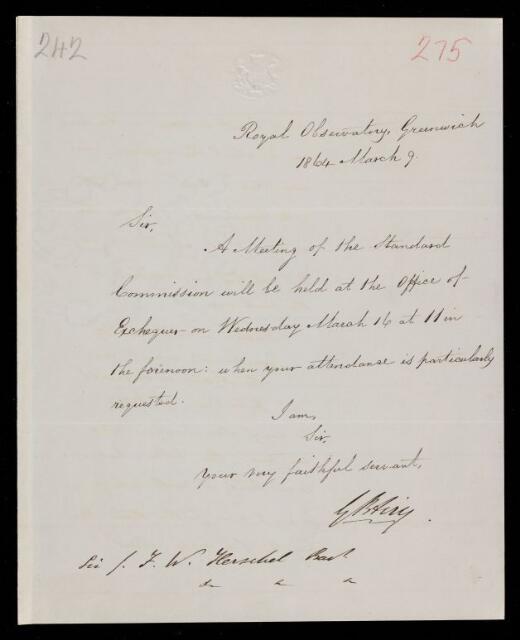 242
275
Royal Observatory, Greenwich
1864 March 9.
Sir,
A Meeting of the Standard
Commission will be held at the Office of
Exchequer on Wednesday March 16 at 11 in
the forenoon: when your attendance is particularly
requested.
I am,
Sir,
Your very faithful servant,
G B Airy.
Sir J. F. W. Herschel Bart